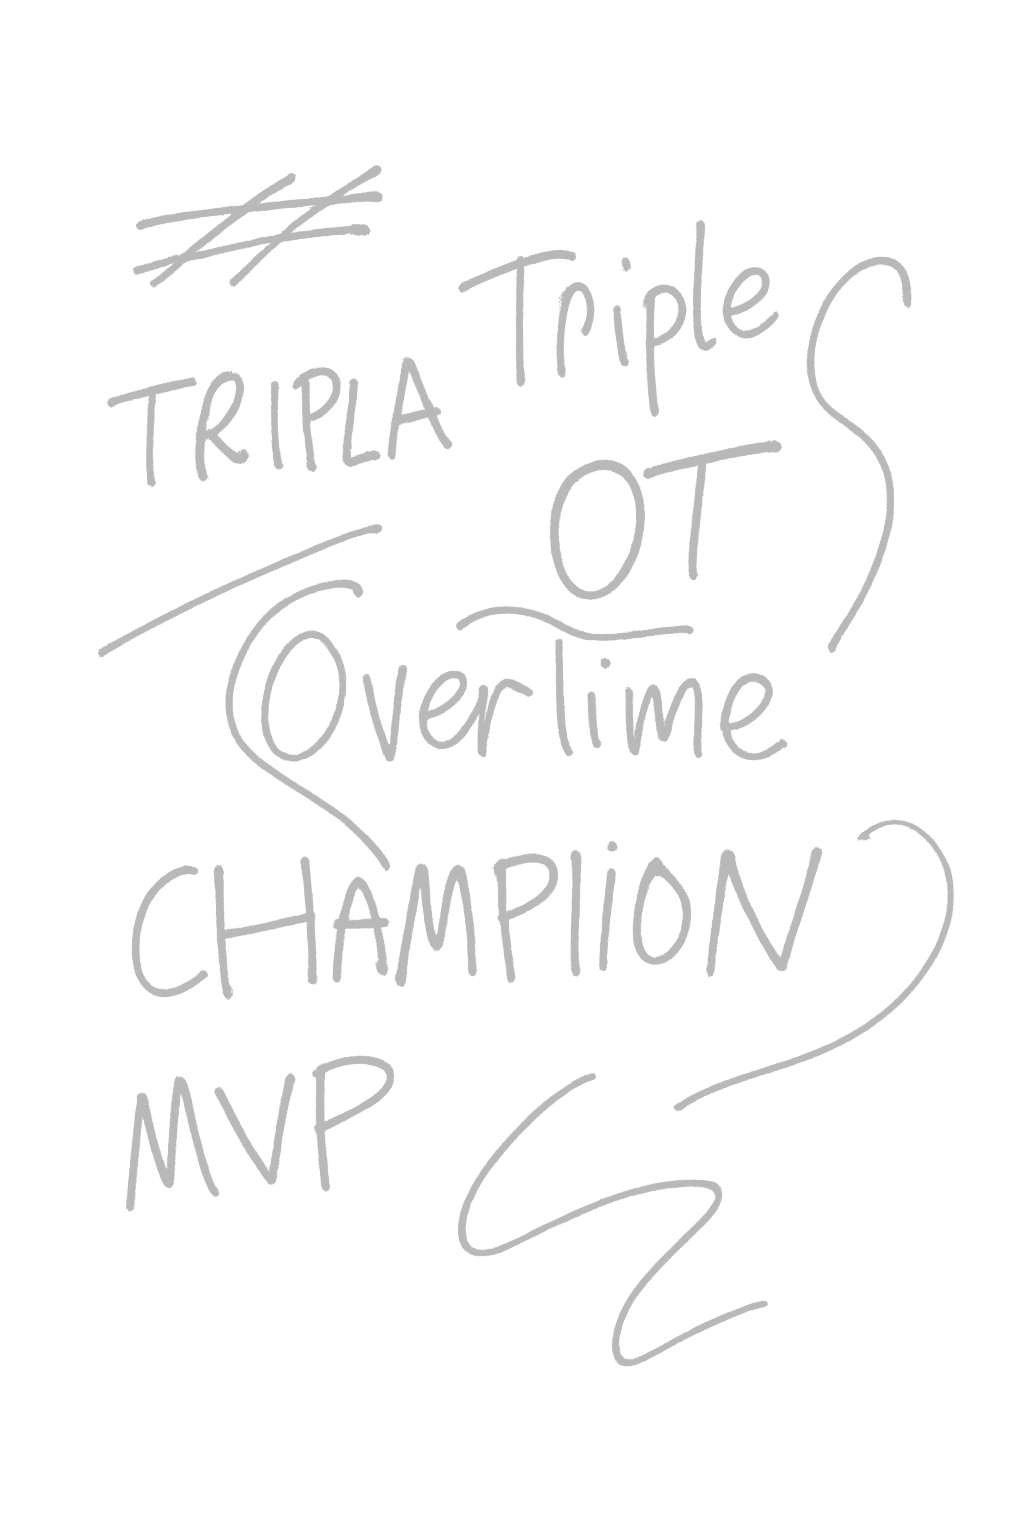 #
Triple
TRIPLA
OT
Overlime
CHAMPIiON
MVP